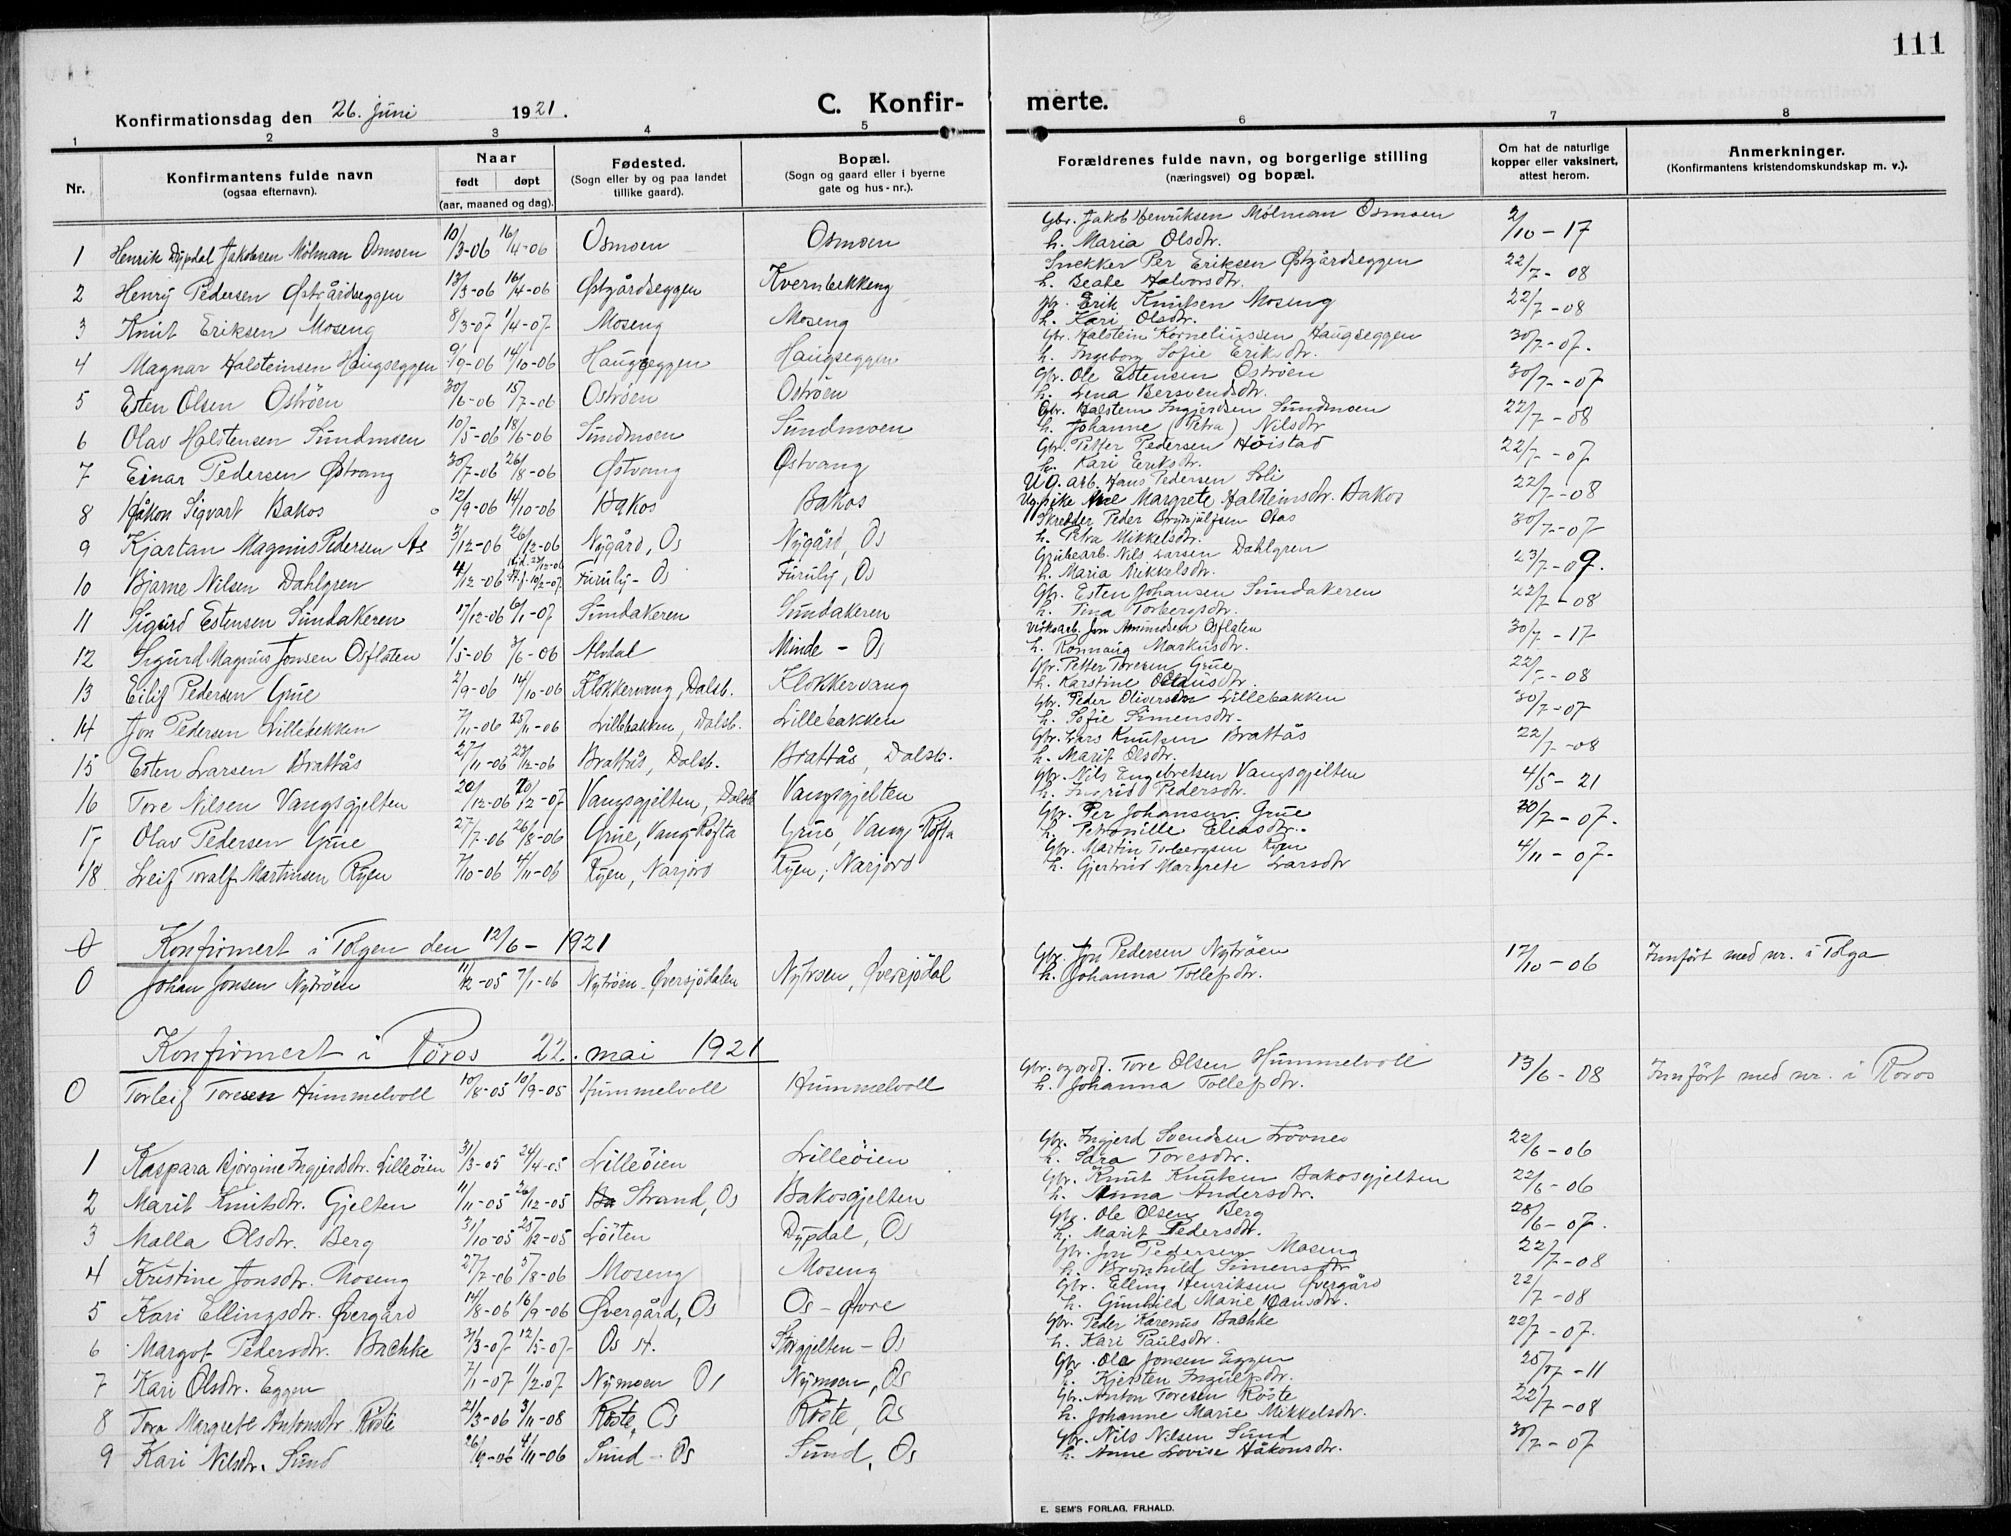 111
Konfirmationsdag den 26. juni 1921. C. Konfirmerte.
1 2 3 4 5 6 7 8
Nr. Konfirmantens fulde navn (ogsaa efternavn). Naar født døpt (aar, maaned og dag). Fødested. (Sogn eller by og paa landet tillike gaard). Bopæl. (Sogn og gaard eller i byerne gate og hus-nr.). Forældrenes fulde navn, og borgerlige stilling (næringsvei) og bopæl. Om hat de naturlige kopper eller vaksinert, attest herom. Anmerkninger. (Konfirmantens kristendomskundskap m. v.).
1 Henrik Dypdal Jakobsen Mølman Osmoen 10/3-06 16/4-06 Osmoen Osmoen Gbr. Jakob Henriksen Mølman Osmoen h. Maria Olsdtr. 2/10-17
2 Henry Pedersen Østgårdseggen 13/3-06 16/4-06 Østgårdseggen Kvernbekkeng Snekker Per Eriksen Østgårdseggen h. Beate Halvorsdtr. 22/7-08
3 Knut Eriksen Moseng 8/3-07 1/4-07 Moseng Moseng Gbr. Erik Knutsen Moseng h. Kari Olsdtr. 22/7-08
4 Magnar Halsteinsen Haugseggen 9/9-06 14/10-06 Haugseggen Haugseggen Gbr. Halstein Korneliussen Haugseggen h. Ingeborg Sofie Eriksdtr. 30/7-07.
5 Esten Olsen Oströen 30/6-06 15/7-06 Oströen Oströen Gbr. Ole Estensen Oströen h. Lena Bersvendsdtr. 30/7-07
6 Olav Halstensen Sundmoen 10/5-06 18/6-06 Sundmoen Sundmoen Gbr. Halsten Ingjerdsen Sundmoen h. Johanne (Petra) Nilsdtr 22/7-08
7 Einar Pedersen Østvang 30/7-06 26/8-06 Østvang Østvang Gbr. Petter Pedersen Höistad h. Kari Eriksdtr. 22/7-07
8 Håkon Sigvart Bakos 12/9-06 14/10-06 Bakos Bakos U.O. arb. Hans Pedersen Soli Ug. pike Ane Margrete Halsteinsdtr. Bakos 22/7-08
9 Kjartan Magnus Pedersen As 3/12-06 26/12-06 Nygård, Os Nygård, Os Skredder Peder Brynjulfsen Oas h. Petra Mikkelsdtr. 30/7-07
10 Bjarne Nilsen Dahlgren 4/12-06 Furuly-Os Furuly, Os Grubearb. Nils Larsen Dahlgren h. Maria Mikkelsdtr. 23/7-09.
11 Sigurd Estensen Sundakeren 17/12-06 6/1-07 Sundakeren Sundakeren Gbr. Esten Johansen Sundakeren h. Tina Torbergsdtr. 22/7-08
12 Sigurd Magnus Jonsen Osflaten 1/5-06 3/6-06 Alvdal Minde - Os Virksarb. Jon Amundsen Osflaten h. Rönnaug Markusdtr. 30/7-17
13 Eilif Pedersen Grue 2/9-06 14/10-06 Klokkervang, Dalsb. Klokkervang Gbr. Petter Toresen Grue h. Karstine Olausdtr. 22/7-08
14 Jon Pedersen Lillebekken 7/11-06 25/11-06 Lillebakken, Dalsb. Lillebakken Gbr. Peder Oliversen Lillebakken h. Sofie Simensdtr. 30/7-07
15 Esten Larsen Brattås 27/11-06 23/12-06 Brattås, Dalsb. Brattås, Dalsb. Gbr. Lars Knutsen Brattås h. Marit Olsdtr. 22/7-08
16 Tore Nilsen Vangsgjelten 20/12-06 10/2-07 Vangsgjelten, Dalsb Vangsgjelten Gbr. Nils Engebretsen Vangsgjelten h. Ingrid Pedersdtr. 4/5-21
17 Olav Pedersen Grue 27/7-06 26/8-06 Grue, Vang-Röfta Grue, Vang Röfta Gbr. Per Johansen Grue h. Petronille Eliasdtr. 30/7-07.
18 Leif Toralf Martinsen Ryen 7/10-06 4/11-06 Ryen, Narjord Ryen, Narjord Gbr. Martin Torbergsen Ryen h. Gjertrud Margrete Larsdtr 4/11-07-
0 Konfirmert i Tolgen den 12/6-1921
0 Johan Jonsen Nytröen 11/12-05 7/1-06 Nytröen-Øversjödalen Nytröen, Øversjödal Gbr. Jon Pedersen Nytröen h. Johanna Tollefsdtr. 17/10-06 Innfört med nr. i Tolga
Konfirmert i Röros 22. mai 1921
0 Torleif Toresen Hummelvoll 10/8-05 10/9-05 Hummelvoll Hummelvoll Gbr. og ordf. Tore Olsen Hummelvoll h. Johanna Tollefsdtr. 13/6-08 Innfört med nr. i Röros
1 Kaspara Bjørgine Ingjerdsdtr. Lilleöien 31/3-05 24/4-05 Lilleöien Lilleöien Gbr. Ingjerd Svendsen Lövnes h. Sara Toresdtr. 22/6-06
2 Marit Knutsdtr. Gjelten 11/11-05 26/12-05 Ba Strand, Os Bakosgjelten Gbr. Knut Knutsen Bakosgjelten h. Anna Andersdtr. 22/6-06
3 Malla Olsdtr. Berg 31/10-05 25/12-05 Löiten Dypdal, Os Gbr. Ole Olsen Berg h. Marit Pedersdtr. 28/6-07.
4 Kristine Jonsdtr. Moseng 27/7-06 5/8-06 Moseng Moseng Gbr. Jon Pedersen Moseng h. Brynhild Simensdtr 22/7-08
5 Kari Ellingsdtr. Øvergård 14/8-06 16/9-06 Øvergård, Os Os - Øvre Gbr. Elling Henriksen Øvergård h. Gunhild Marie Hansdtr. 22/7-08
6 Margot Pedersdtr. Bachke 3/3-07 12/5-07- Os st. Storgjelten - Os Gbr. Peder Karenus Bachke h. Kari Paulsdtr. 22/7-07.
7 Kari Olsdtr. Eggen 7/1-07 1/2-07 Nymoen Os Nymoen, Os Gbr. Ola Jonsen Eggen h. Kjersten Ingulfsdtr. 25/07-11
8 Tora Margrete Antonsdtr. Röste 21/3-06 3/11-08 Röste, Os Röste, Os Gbr. Anton Toresen Röste h. Johanne Marie Mikkelsdtr. 22/7-08
9 Kari Nilsdtr. Sund 26/9-06 4/11-06 Sund - Os Sund, Os Gbr. Nils Nilsen Sund h. Anne Lovise Håkonsdtr. 30/7-07
E. SEM'S FORLAG, FR.HALD.